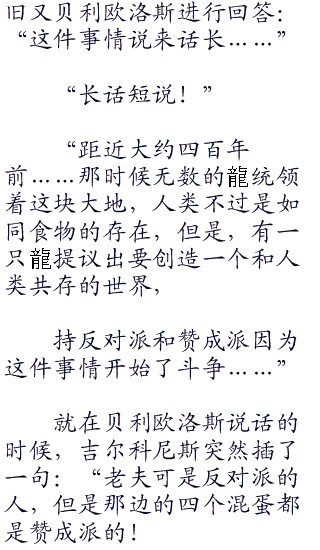 旧又贝利欧洛斯进行回答：
“这件事情说来话长……”
“长话短说！”
“距近大约四百年
前……那时候无数的龍统领
着这块大地，人类不过是如
同食物的存在，但是，有一
只龍提议出要创造一个和人
类共存的世界，
持反对派和赞成派因为
这件事情开始了斗争……”
就在贝利欧洛斯说话的
时候，吉尔科尼斯突然插了
一句：“老夫可是反对派的
人，但是那边的四个混蛋都
是赞成派的！